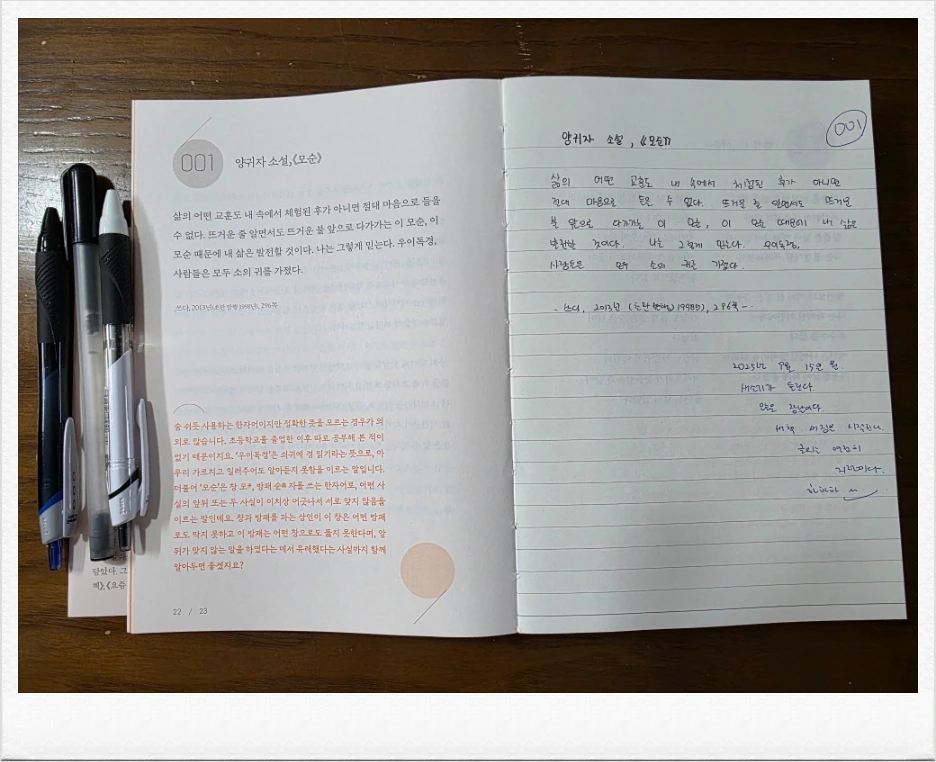 001
양귀자 소설, 《모순》
삶의 어떤 교훈도 내 속에서 체험된 후가 아니면 절대 마음으로 들을
수 없다. 뜨거운 줄 알면서도 뜨거운 불 앞으로 다가가는 이 모순, 이
모순 때문에 내 삶은 발전할 것이다. 나는 그렇게 믿는다. 우이독경,
사람들은 모두 소의 귀를 가졌다.
쓰다, 2013년(초판 발행 1998년), 296쪽
숨 쉬듯 사용하는 한자어이지만 정확한 뜻을 모르는 경우가 의
외로 많습니다. 초등학교를 졸업한 이후 따로 공부해 본 적이
없기 때문이지요. '우이독경'은 쇠귀에 경 읽기라는 뜻으로, 아
무리 가르치고 일러주어도 알아듣지 못함을 이르는 말입니다.
더불어 '모순'은 창 모矛, 방패 순盾 자를 쓰는 한자어로, 어떤 사
실의 앞뒤 또는 두 사실이 이치상 어긋나서 서로 맞지 않음을
이르는 말인데요. 창과 방패를 파는 상인이 이 창은 어떤 방패
로도 막지 못하고 이 방패는 어떤 창으로도 뚫지 못한다며, 앞
뒤가 맞지 않는 말을 하였다는 데서 유래했다는 사실까지 함께
알아두면 좋겠지요?
22 / 23
닮았다. 그
께》, 《요즘
001
양귀자 소설, 《모순》
삶의 어떤 교훈도 내 속에서 체험된 후가 아니면
절대 마음으로 들을 수 없다. 뜨거운 줄 알면서도 뜨거운
불 앞으로 다가가는 이 모순, 이 모순 때문에 내 삶은
발전할 것이다. 나는 그렇게 믿는다. 우이독경,
사람들은 모두 소의 귀를 가졌다.
쓰다, 2013년 (초판 발행 1998년), 296쪽
2025년 9월 15일 월.
새소리가 들린다.
오늘은
새책 새 시작한다.
글씨는 여전히